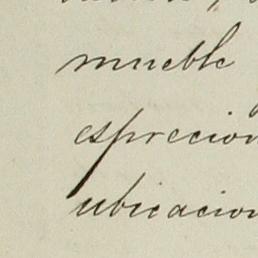 mueble
esprecion
ubicacion